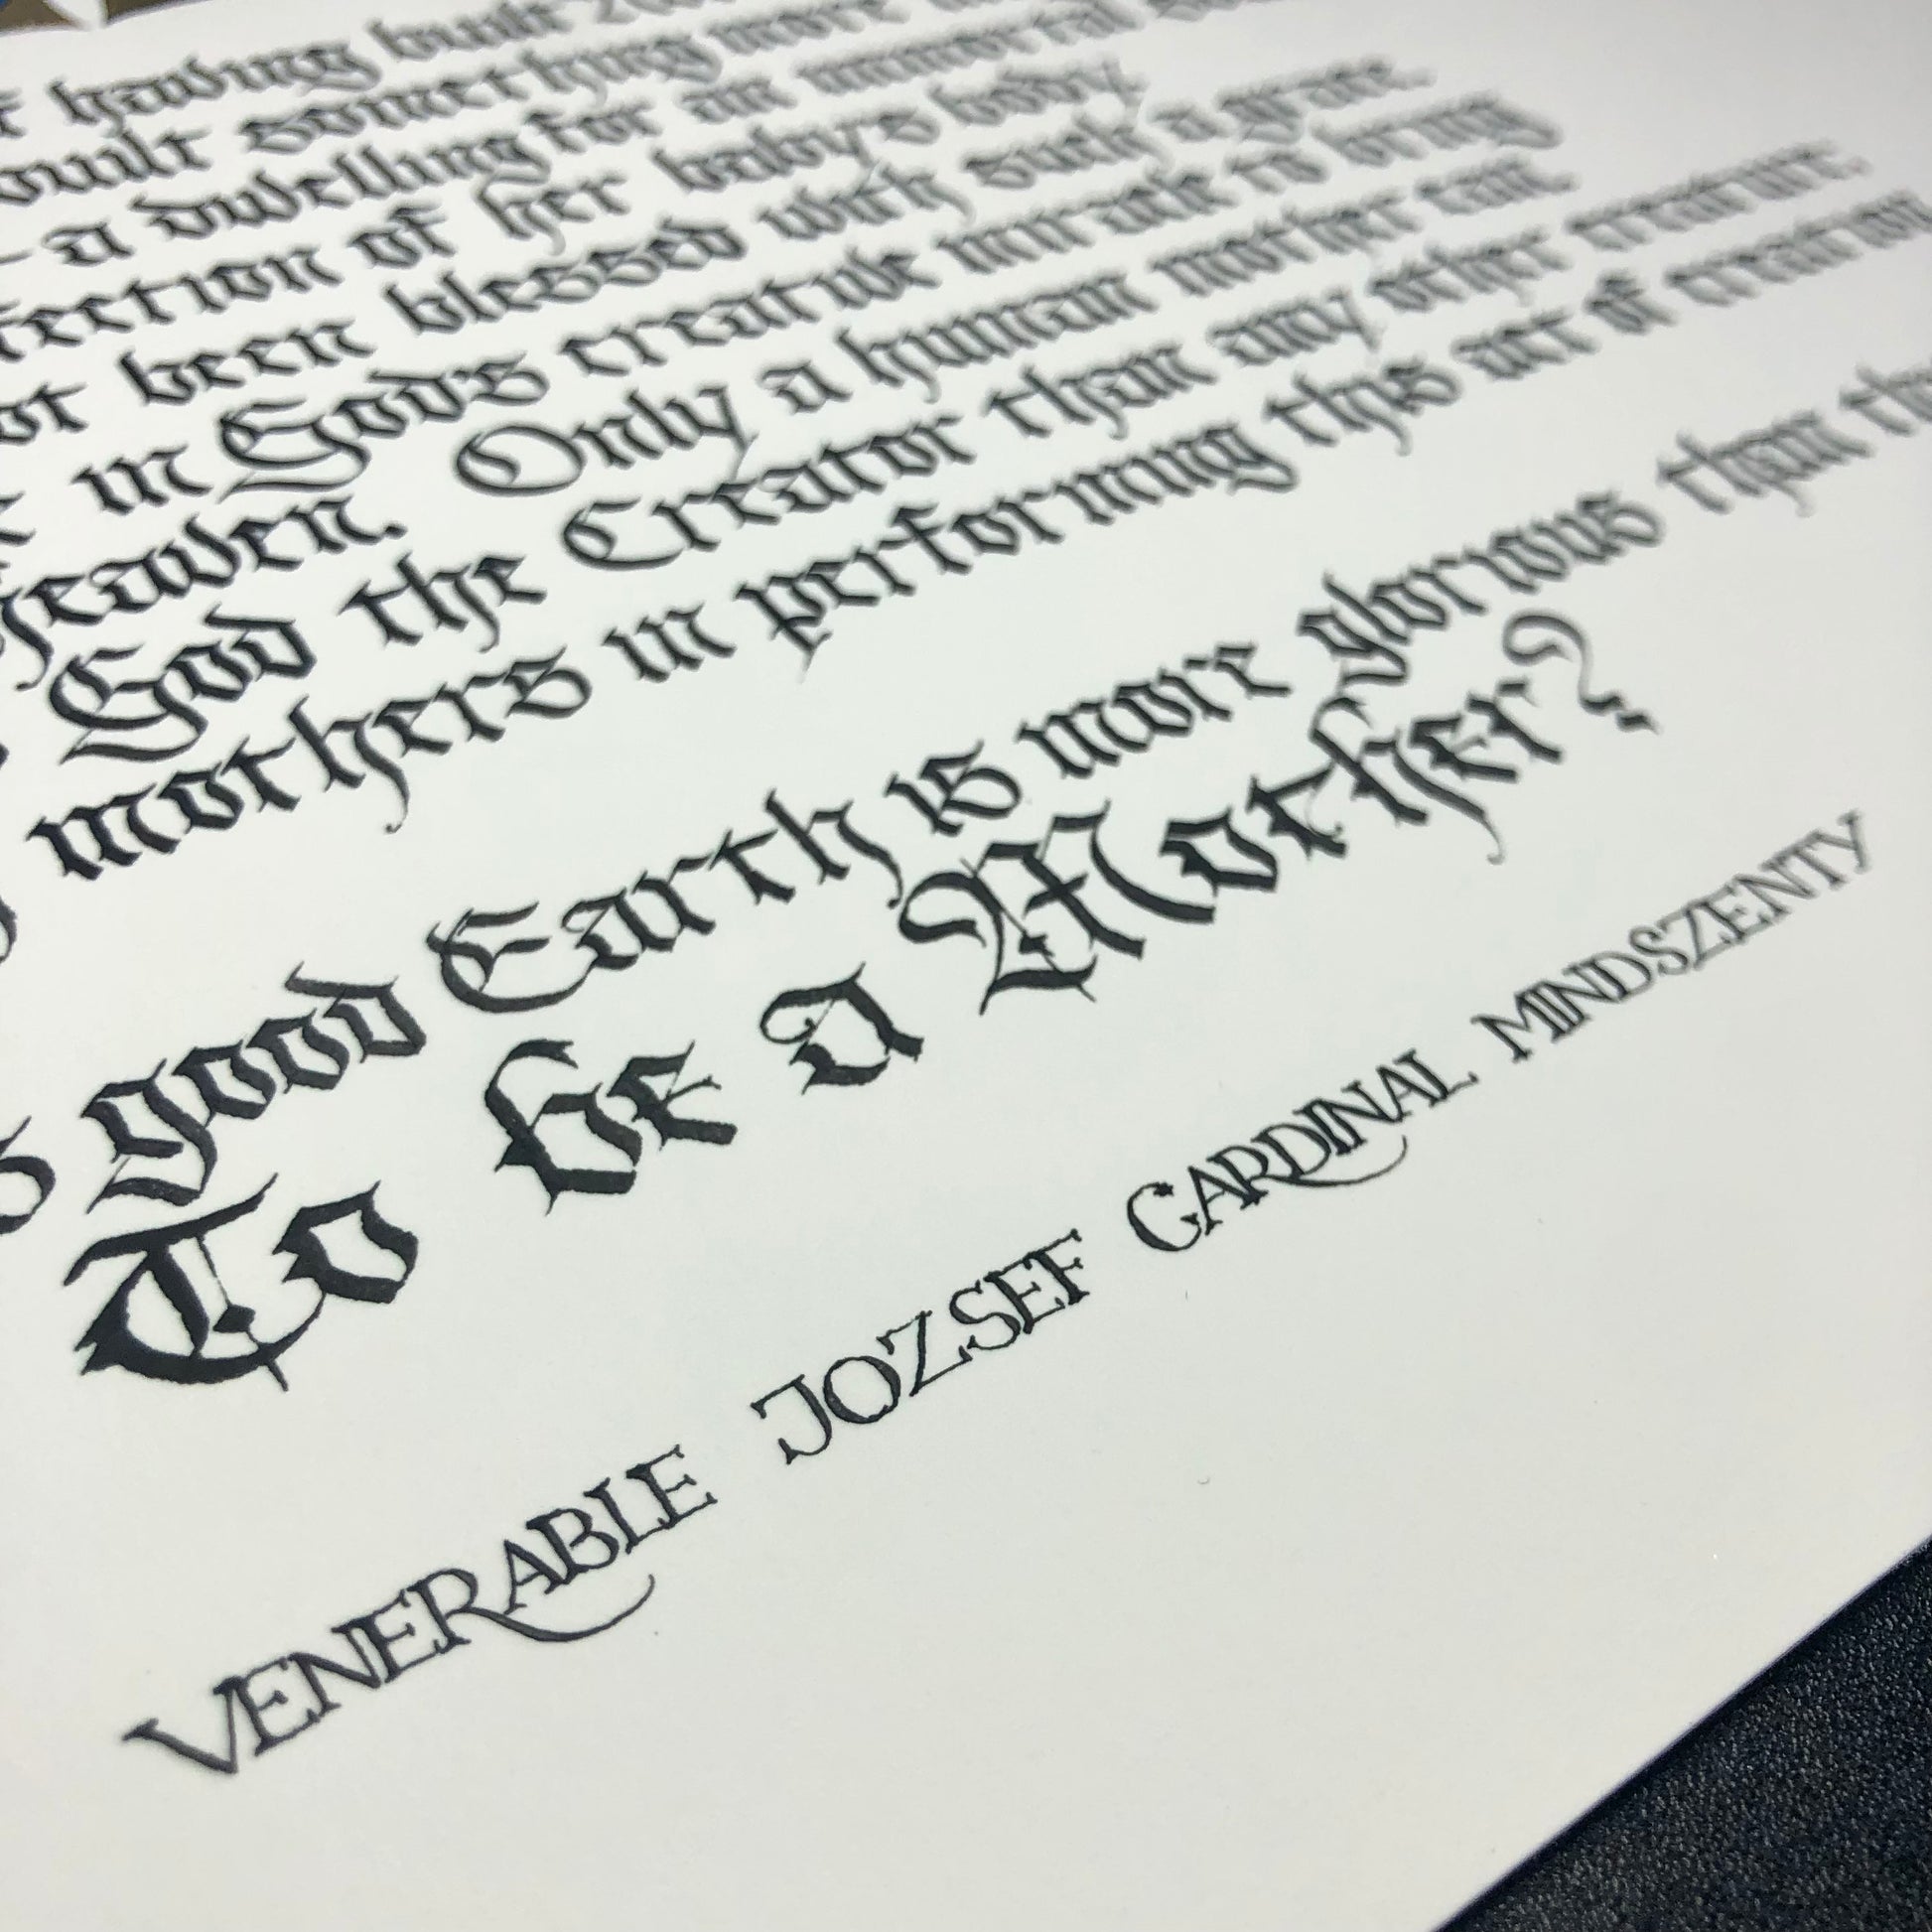 having built
built something more
a dwelling for an immortal
of her baby's body
been blessed with such a grace.
in God's creative miracle to bring
Only a human mother can.
God the Creator than any other creature.
mothers in performing this act of creation
good Earth is more glorious than
To be a Mother?
VENERABLE JOZSEF CARDINAL MINDSZENTY